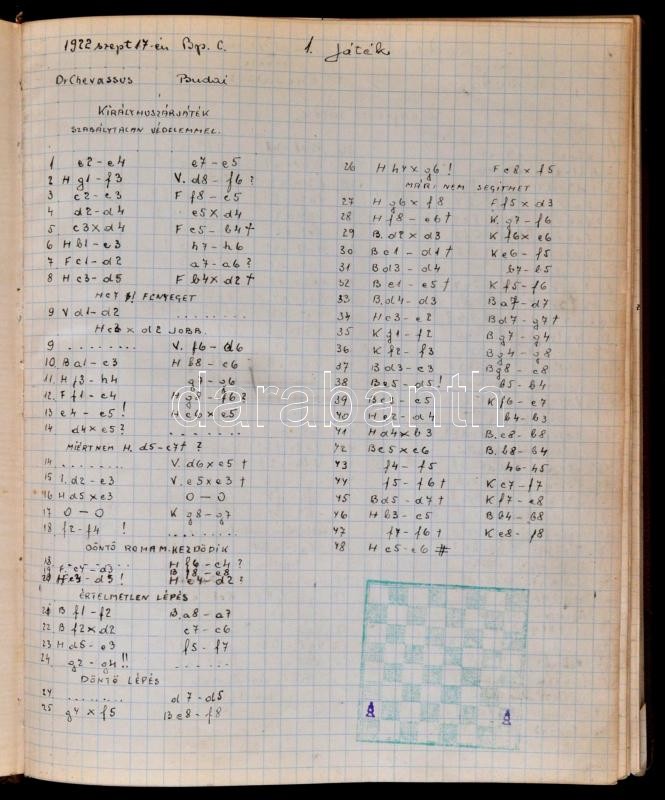 1922 szept 17-én Bp. C. 1. Játék
Dr Chevassus Budai
KIRÁLYHUSZÁRJÁTÉK
SZABÁLYTALAN VÉDELEMMEL.
1 e2-e4 e7-e5
2 H g1-f3 V. d8-f6?
3 c2-c3 F f8-c5
4 d2-d4 e5xd4
5 c3xd4 F c5-b4†
6 H b1-c3 h7-h6
7 F c1-d2 a7-a6?
8 H c3-d5 F b4xd2†
FENYEGET
9 V d1-d2 ........
Hf3 x d2 JOBB.
9 ........ V. f6-d6
10. B a1-c3 H b8-c6
11. H f3-h4 g7-g6
12. F f1-c4 H g8-f6?
13 e4-e5! H c6xe5
14 d4xe5? ........
MIÉRT NEM H. d5-c7†?
14. ........ V. d6xe5†
15 d2-e3 V. e5xe3†
16 H d5xe3 O-O
17 O-O K g8-g7
18. f2-f4 ! ........
DÖNTŐ ROHAM KEZDŐDIK
18. ........ H f6-e4?
19 F. c4-d3 B f8-e8
20 H e3-d5! H e4-d2?
ÉRTELMETLEN LÉPÉS
21 B f1-f2 B. a8-a7
22. B f2xd2 c7-c6
23 H d5-e3 f5-f7
24. g2-g4!! ........
DÖNTŐ LÉPÉS
24. ........ d7-d5
25 g4xf5 B e8-f8
26 H h4xg6! F c8xf5
MÁR NEM SEGÍTHET
27 H g6xf8 F f5xd3
28 H f8-e6† K. g7-f6
29 B. d2xd3 K f6xe6
30 B c1-d1† K e6-f5
31 B d3-d4 b7-b5
32 B e1-e5† K f5-f6
33 B. d4-d3 B a7-d7
34 H e3-e2 B d7-g7†
35 K g1-f2 B g7-g4
36 K f2-f3 B g4-g8
37 B d3-e3 B g8-c8
38 B e5-d5! b5-b4
39 B e3-e5 K f6-e7
40 H e2-d4 b4-b3
41 H d4xb3 B. c8-b8
42 B c5xc6 B. b8-b4
43 f4-f5 h6-h5
44 f5-f6† K e7-f7
45 B d5-d7† K f7-e8
46 H b3-c5 B b4-b8
47 f7-f6† K e8-f8
48 H c5-e6 #
darabanth